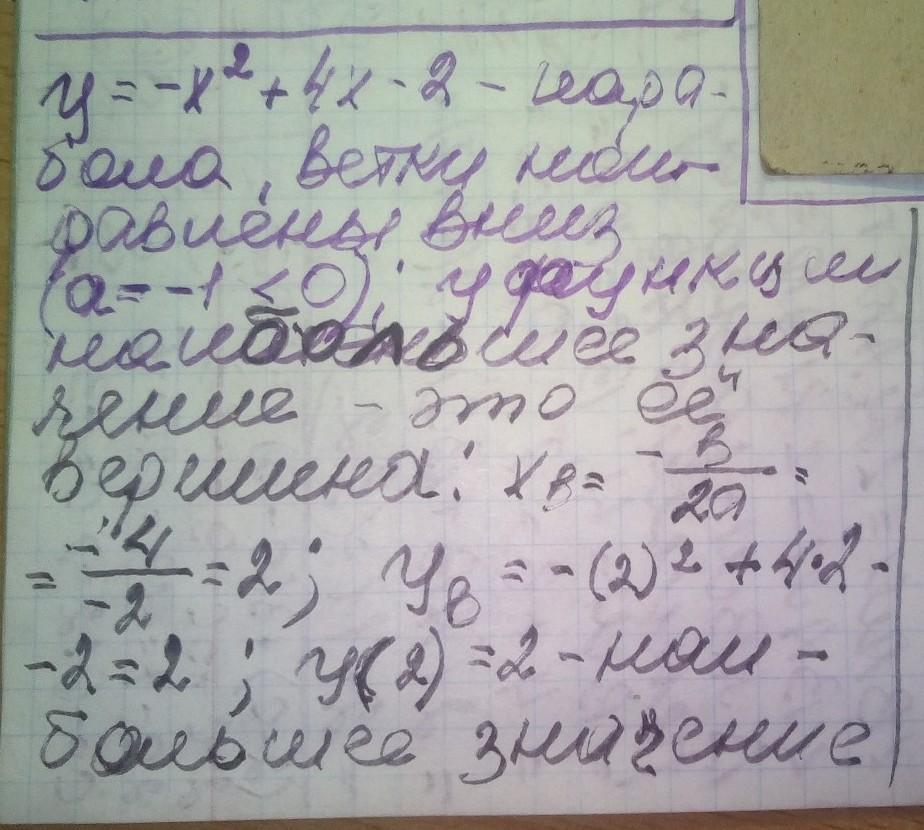 y = -x² + 4x - 2 - пара-
бола, ветки нап-
равлены вниз
(a = -1 < 0); у функции
наибольшее зна-
чение - это её
вершина: xв = -в/2а =
= -4/-2 = 2; yв = -(2)² + 4·2 -
-2 = 2; y(2) = 2 - наи-
большее значение